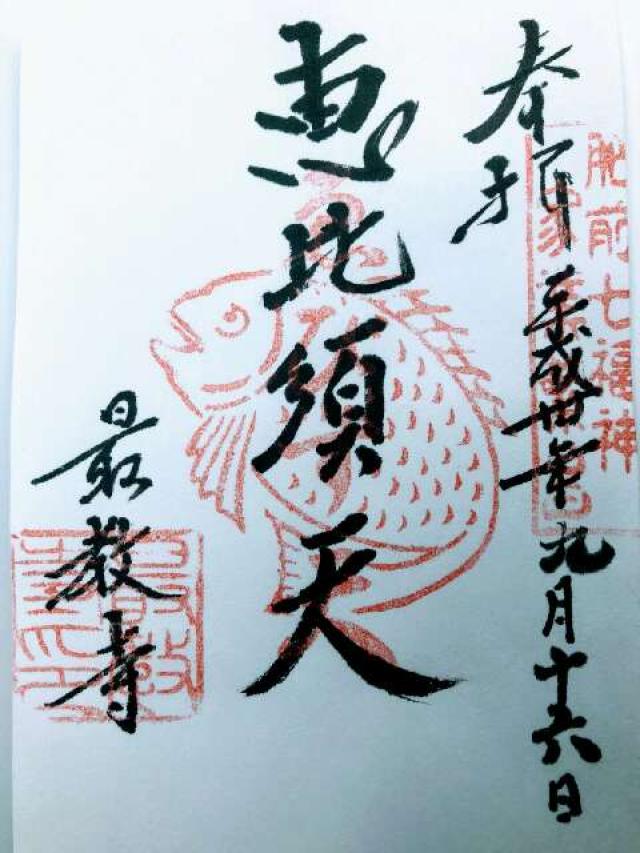 肥前七福神
奉拝 平成卅年九月十六日
恵比須天
最教寺